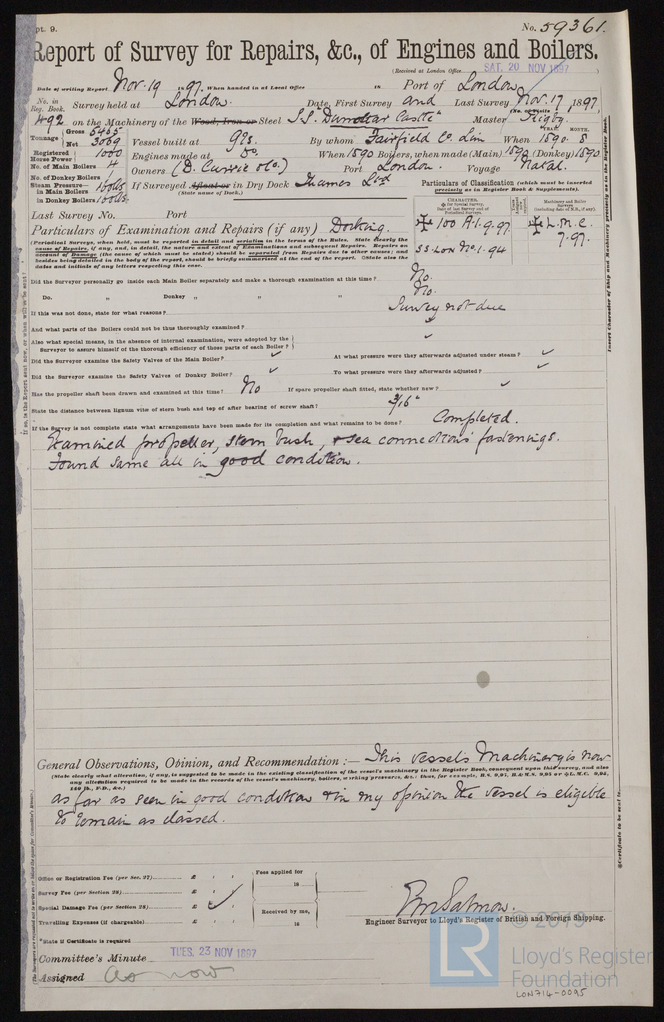 pt. 9.
No. 59361.
Report of Survey for Repairs, &c., of Engines and Boilers.
(Received at London Office SAT. 20 NOV 1897)
Date of writing Report Nov. 19 1897. When handed in at Local Office 18 Port of London
No. in Reg. Book. Survey held at London. Date, First Survey and Last Survey Nov. 17, 1897.
(No. of Visits
492 on the Machinery of the Wood, Iron or Steel S.S. "Dunottar Castle" Master Rigby.
Tonnage Gross 5465
Net 3069
Vessel built at Gls. By whom Fairfield Co. Lim When 1890. 8
YEAR. MONTH.
Registered Horse Power 1000
Engines made at Do. When 1890 Boilers, when made (Main) 1890 (Donkey) 1890
No. of Main Boilers 4
Owners (D. Currie &Co.) Port London. Voyage Natal.
No. of Donkey Boilers 1
Steam Pressure in Main Boilers
in Donkey Boilers
If Surveyed Afloat or in Dry Dock Thames Ltd
(State name of Dock.)
Particulars of Classification (which must be inserted precisely as in Register Book & Supplements).
Last Survey No. Port
CHARACTER.
Machinery and Boiler Surveys
100 A.1. 9.97
L.M.C. 7.97.
SS. Lon No.1. 94
Particulars of Examination and Repairs (if any) Docking.
(Periodical Surveys, when held, must be reported in detail and seriatim in the terms of the Rules. State clearly the
cause of Repairs, if any, and, in detail, the nature and extent of Examinations and subsequent Repairs. Repairs on
account of Damage (the cause of which must be stated) should be separated from Repairs due to other causes; and
besides being detailed in the body of the report, should be briefly summarised at the end of the report. State also the
dates and initials of any letters respecting this case.
Did the Surveyor personally go inside each Main Boiler separately and make a thorough examination at this time? No.
Do. " Donkey " " " No.
If this was not done, state for what reasons? Survey not due
And what parts of the Boilers could not be thus thoroughly examined?
Also what special means, in the absence of internal examination, were adopted by the
Surveyor to assure himself of the thorough efficiency of those parts of each Boiler?
Did the Surveyor examine the Safety Valves of the Main Boiler? At what pressure were they afterwards adjusted under steam?
Did the Surveyor examine the Safety Valves of Donkey Boiler? To what pressure were they afterwards adjusted?
Has the propeller shaft been drawn and examined at this time? No If spare propeller shaft fitted, state whether new?
State the distance between lignum vitæ of stern bush and top of after bearing of screw shaft? 3/16"
If the Survey is not complete state what arrangements have been made for its completion and what remains to be done? Completed.
Examined propeller, stern bush, & sea connections fastenings.
Found same all in good condition.
General Observations, Opinion, and Recommendation :— This vessels Machinery is now
(State clearly what alteration, if any, is suggested to be made in the existing classification of the vessel's machinery in the Register Book, consequent upon this survey, and also
any alteration required to be made in the records of the vessel's machinery, boilers, working pressures, &c.: thus, for example,
as far as seen in good condition & in my opinion the vessel is eligible
to remain as classed.
Office or Registration Fee (per Sec. 27) £
Survey Fee (per Section 28) £
Special Damage Fee (per Section 28) £
Travelling Expenses (if chargeable) £
Fees applied for
18
Received by me,
18
*State if Certificate is required
Engineer Surveyor to Lloyd's Register of British and Foreign Shipping.
Committee's Minute TUES. 23 NOV 1897
Assigned As now
Insert Character of Ship and Machinery precisely as in the Register Book.
Certificate to be sent to
LR
© 2019
Lloyd's Register
Foundation
LON714-0095